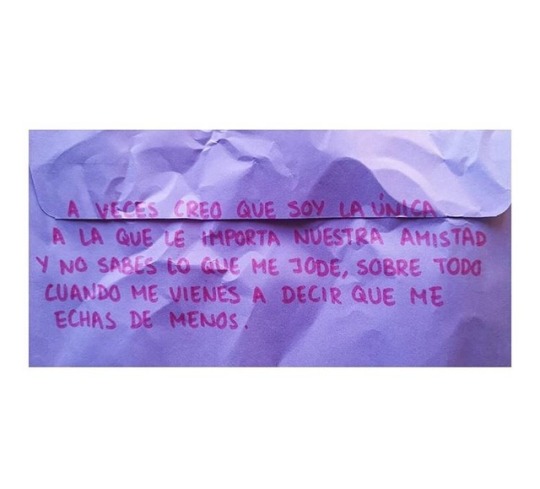 A VECES CREO QUE SOY LA ÚNICA
A LA QUE LE IMPORTA NUESTRA AMISTAD
Y NO SABES LO QUE ME JODE, SOBRE TODO
CUANDO ME VIENES A DECIR QUE ME
ECHAS DE MENOS.